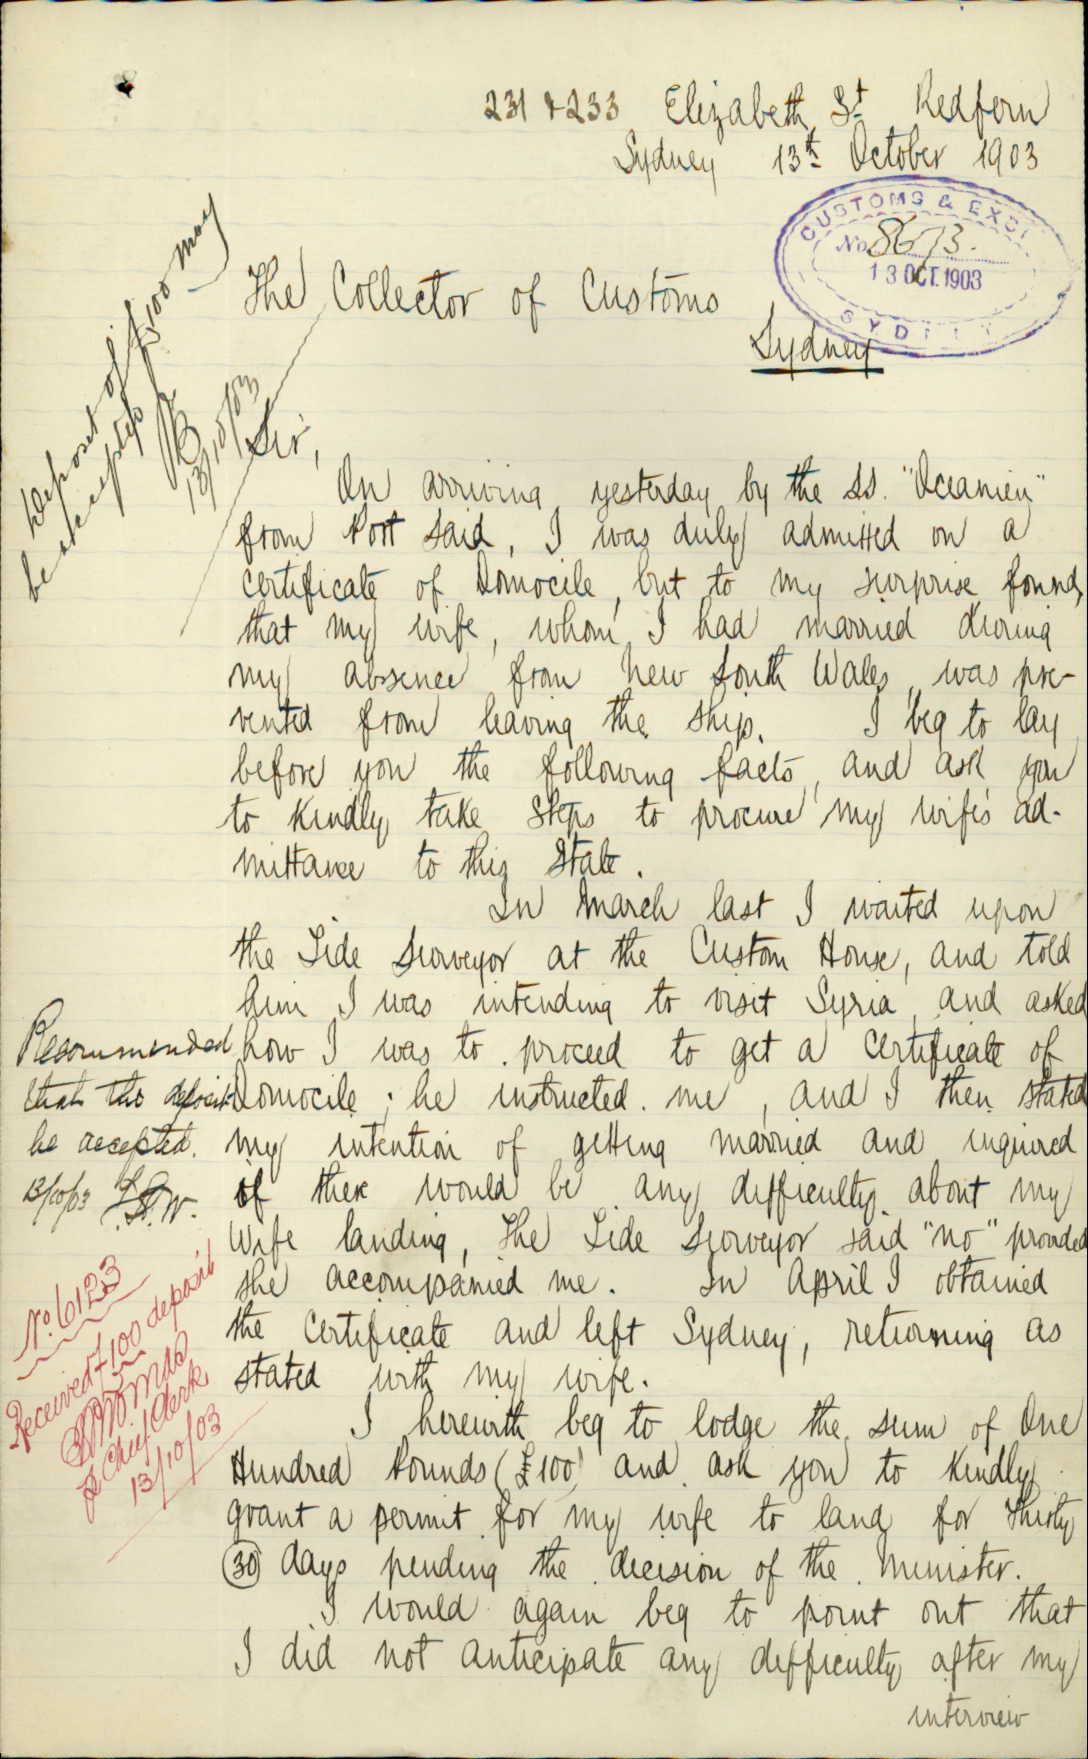 231 & 233 Elizabeth St Redfern
Sydney 13th October 1903
CUSTOMS & EXCI
No 8673.
13 OCT. 1903
SYDNEY
The Collector of Customs
Sydney
Deposit of £100 may
be accepted
13/10/03
Sir,
On arriving yesterday by the SS. "Oceanien"
from Port Said, I was duly admitted on a
certificate of Domocile, but to my surprise found
that my wife, whom I had married during
my absence from New South Wales, was pre-
vented from leaving the ship. I beg to lay
before you the following facts, and ask you
to kindly take steps to procure my wife's ad-
mittance to this State.
In March last I waited upon
the Tide Surveyor at the Custom House, and told
him I was intending to visit Syria and asked
how I was to proceed to get a Certificate of
Domocile; he instructed me, and I then stated
my intention of getting married and inquired
if there would be any difficulty about my
Wife landing, The Tide Surveyor said "no" provided
she accompanied me. In April I obtained
the Certificate and left Sydney, returning as
stated with my wife.
Recommended
that the deposit
be accepted.
13/10/03
No. 6123
Received £100 deposit
Chief Clerk
13/10/03
I herewith beg to lodge the sum of One
Hundred Pounds (£100) and ask you to kindly
grant a permit for my wife to land for Thirty
(30) days pending the decision of the Minister.
I would again beg to point out that
I did not anticipate any difficulty after my
interview